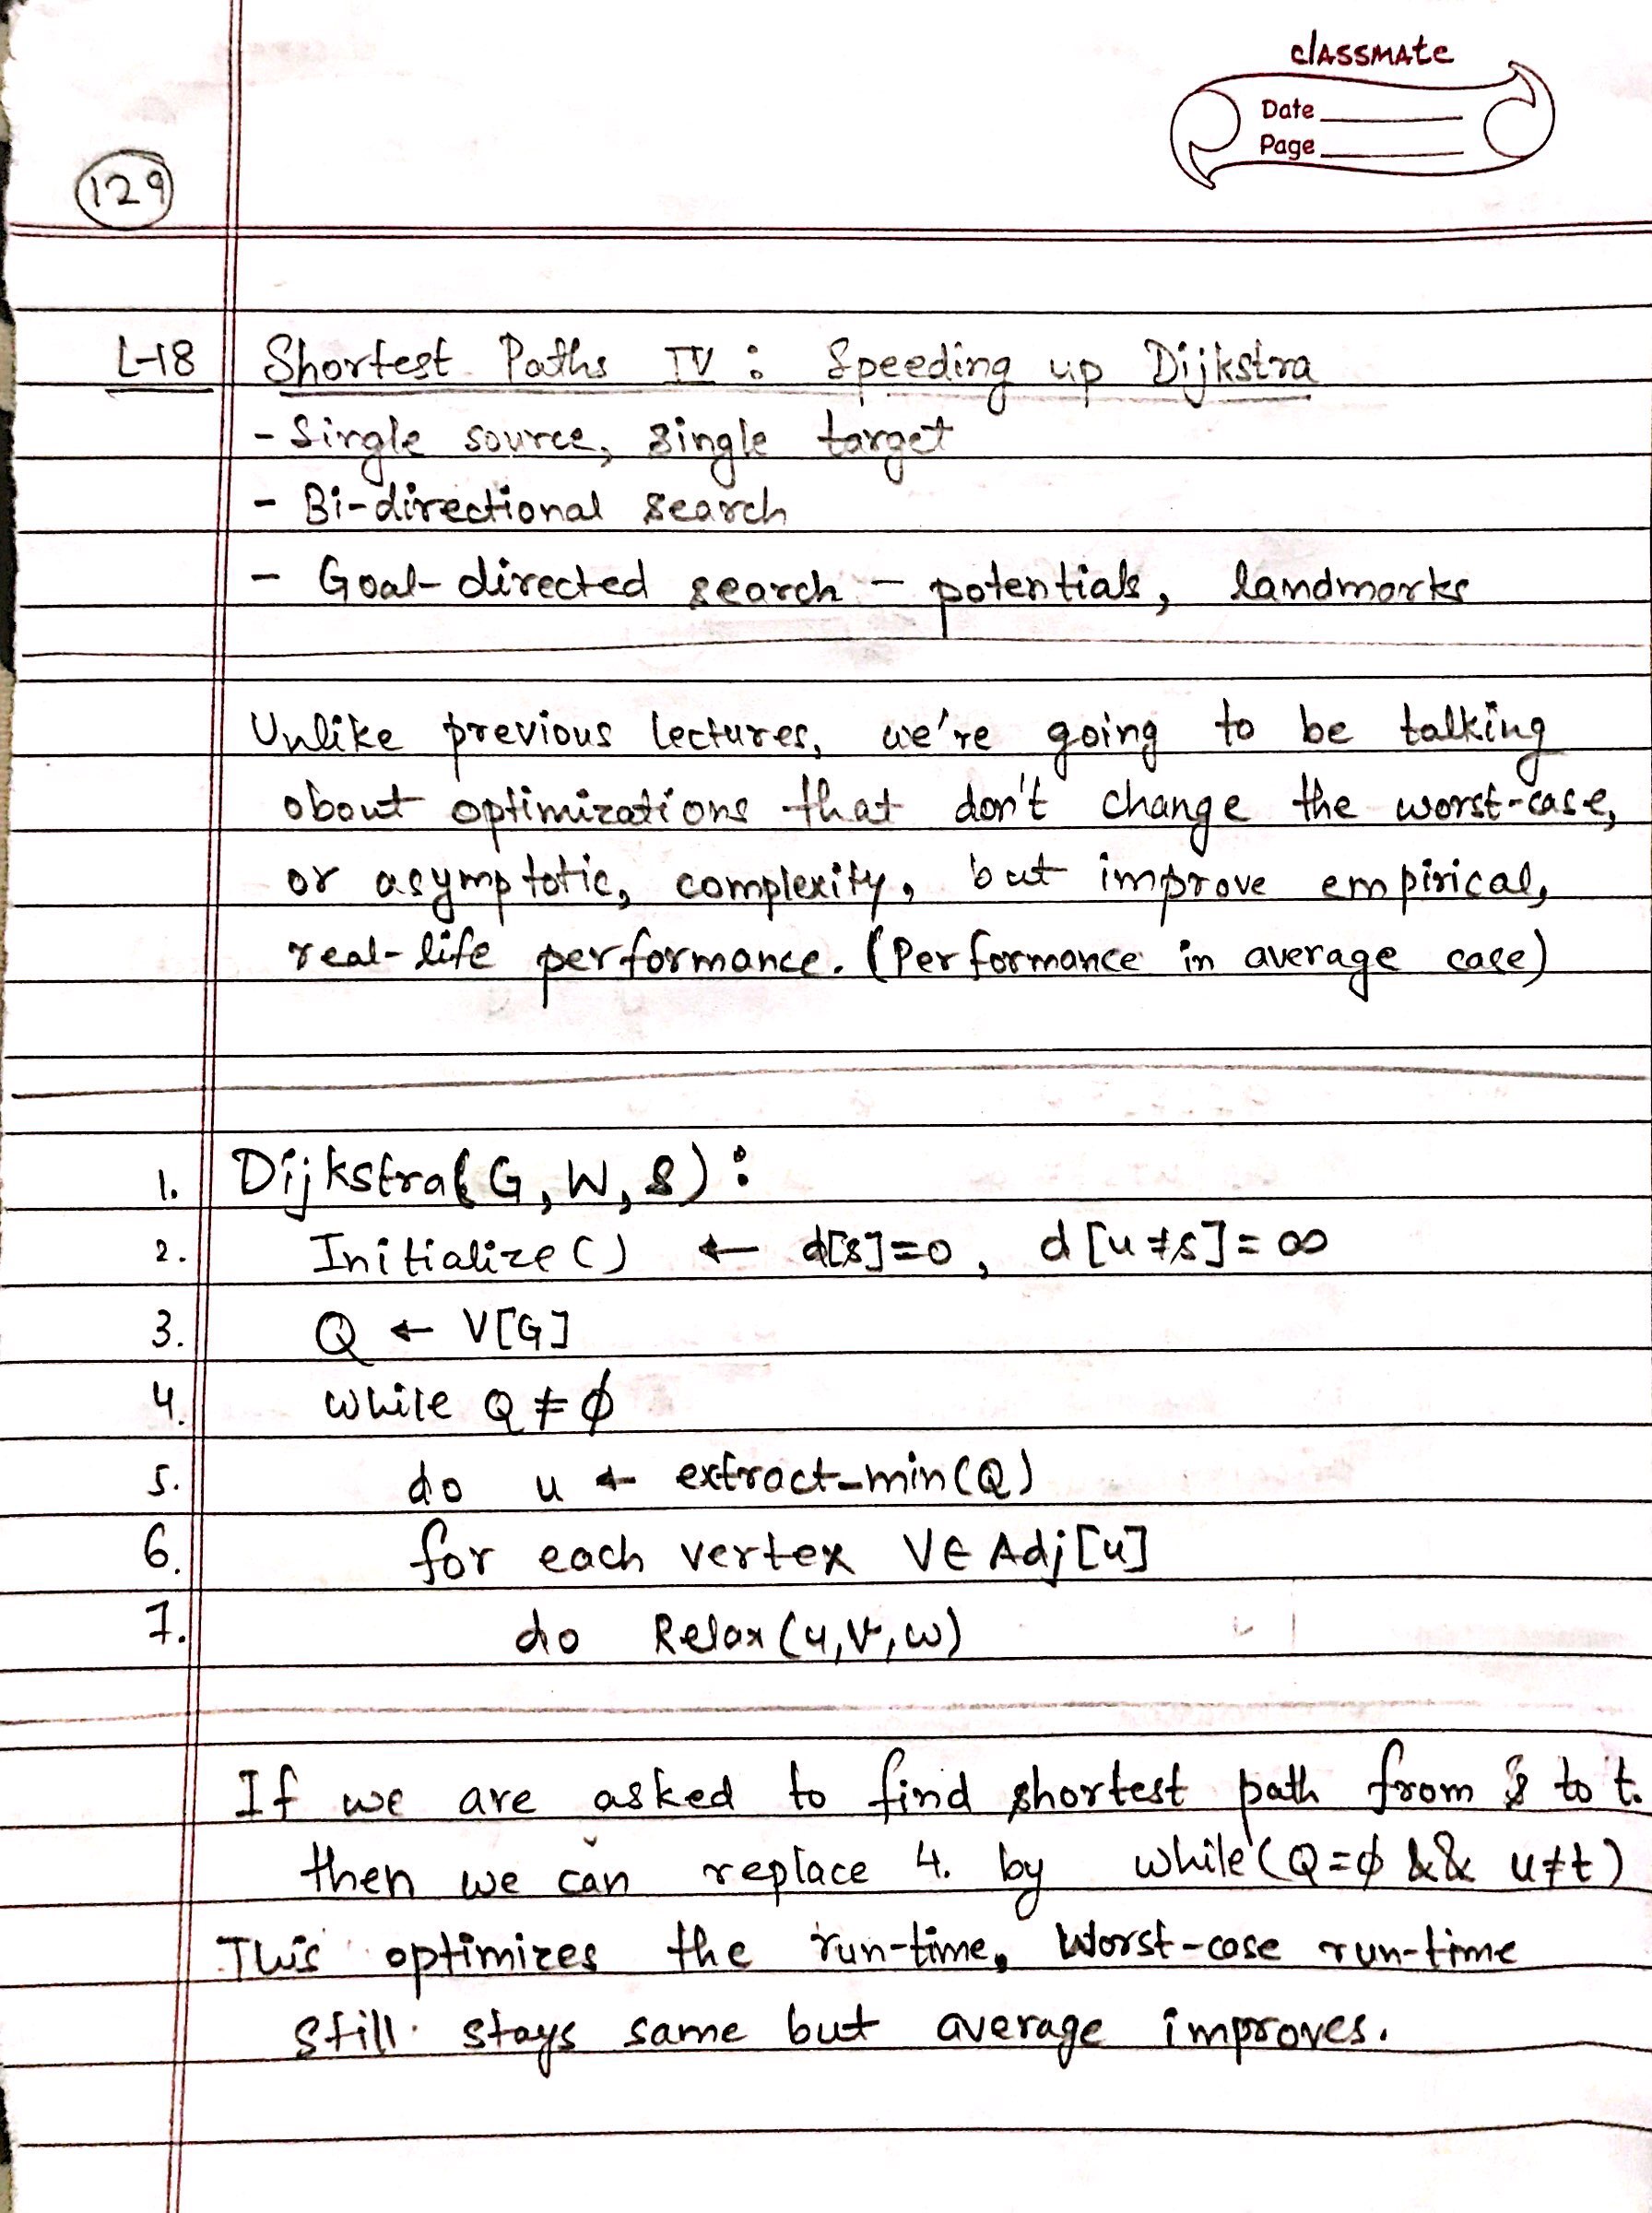 classmate
Date
Page
129
L-18 Shortest Paths IV : Speeding up Dijkstra
- Single source, single target
- Bi-directional search
- Goal-directed search - potentials, landmarks
Unlike previous lectures, we're going to be talking
about optimizations that don't change the worst-case,
or asymptotic, complexity, but improve empirical,
real-life performance. (Performance in average case)
1. Dijkstra(G, W, s) :
2. Initialize() ← d[s]=0, d[u≠s]=∞
3. Q ← V[G]
4. while Q≠ϕ
5. do u ← extract-min(Q)
6. for each vertex V∈Adj[u]
7. do Relax(u,v,w)
If we are asked to find shortest path from s to t.
then we can replace 4. by while(Q=ϕ && u≠t)
This optimizes the run-time, Worst-case run-time
still stays same but average improves.